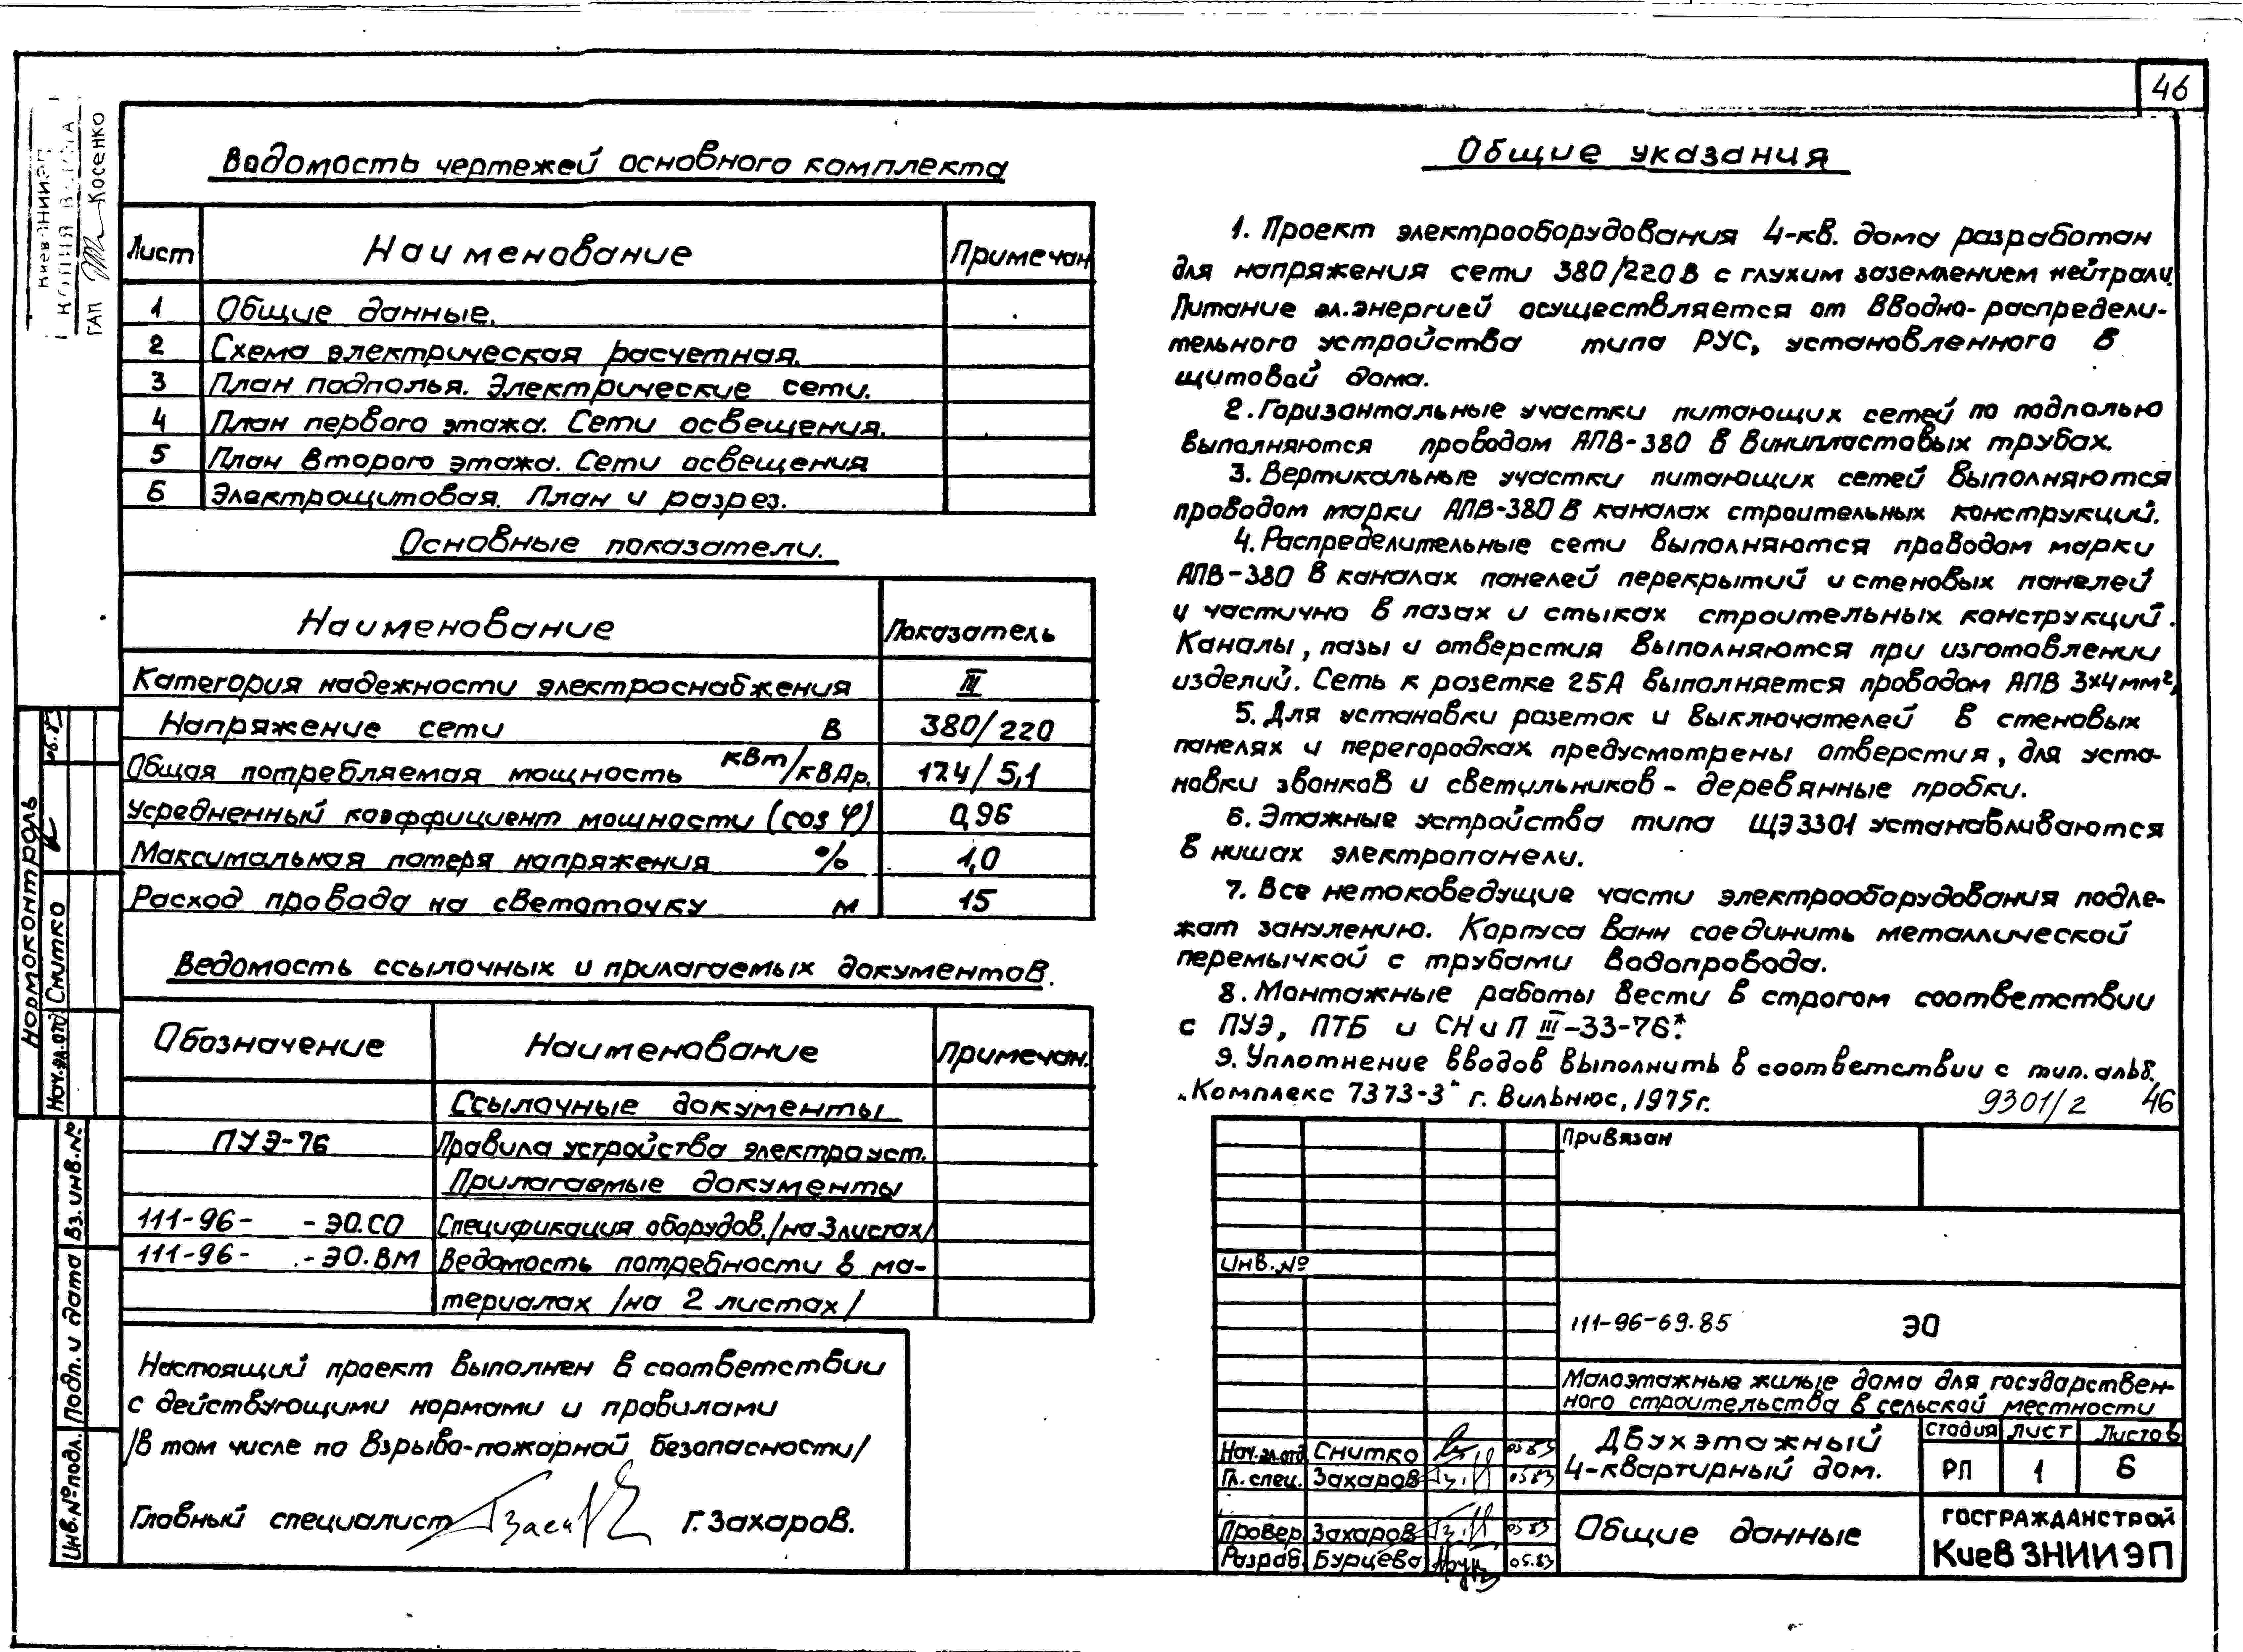 46
КиевЗНИИЭП
КОПИЯ ВЕРНА
ГАП Косенко
Ведомость чертежей основного комплекта
Лист Наименование Примечан
1 Общие данные.
2 Схема электрическая расчетная.
3 План подполья. Электрические сети.
4 План первого этажа. Сети освещения.
5 План второго этажа. Сети освещения
6 Электрощитовая. План и разрез.
Основные показатели.
Наименование Показатель
Категория надежности электроснабжения III
Напряжение сети В 380/220
Общая потребляемая мощность кВт/кВАр. 17.4/5,1
Усредненный коэффициент мощности (cos φ) 0,96
Максимальная потеря напряжения % 1,0
Расход провода на светоточку м 15
Ведомость ссылочных и прилагаемых документов.
Обозначение Наименование Примечан.
Ссылочные документы
ПУЭ-76 Правила устройства электроуст.
Прилагаемые документы
111-96- -ЭО.СО Спецификация оборудов./на 3 листах/
111-96- -ЭО.ВМ Ведомость потребности в ма-
териалах /на 2 листах/
Настоящий проект выполнен в соответствии
с действующими нормами и правилами
/в том числе по взрыво-пожарной безопасности/
Главный специалист Г. Захаров.
Общие указания
1. Проект электрооборудования 4-кв. дома разработан
для напряжения сети 380/220В с глухим заземлением нейтрали.
Питание эл.энергией осуществляется от вводно-распредели-
тельного устройства типа РУС, установленного в
щитовой дома.
2. Горизонтальные участки питающих сетей по подполью
выполняются проводом АПВ-380 в винипластовых трубах.
3. Вертикальные участки питающих сетей выполняются
проводом марки АПВ-380В каналах строительных конструкций.
4. Распределительные сети выполняются проводом марки
АПВ-380 в каналах панелей перекрытий и стеновых панелей
и частично в пазах и стыках строительных конструкций.
Каналы, пазы и отверстия выполняются при изготовлении
изделий. Сеть к розетке 25А выполняется проводом АПВ 3х4мм²,
5. Для установки розеток и выключателей в стеновых
панелях и перегородках предусмотрены отверстия, для уста-
новки звонков и светильников - деревянные пробки.
6. Этажные устройства типа ЩЭ3301 устанавливаются
в нишах электропанели.
7. Все нетоковедущие части электрооборудования подле-
жат занулению. Корпуса ванн соединить металлической
перемычкой с трубами водопровода.
8. Монтажные работы вести в строгом соответствии
с ПУЭ, ПТБ и СНиП III-33-76*.
9. Уплотнение вводов выполнить в соответствии с тип. альб.
„Комплекс 7373-3" г. Вильнюс, 1975г.
9301/2 46
Привязан
Инв.№
111-96-69.85 ЭО
Малоэтажные жилые дома для государствен-
ного строительства в сельской местности
Двухэтажный
4-квартирный дом.
Стадия Лист Листов
РП 1 6
Общие данные
ГОСГРАЖДАНСТРОЙ
КиевЗНИИЭП
Нач.эл.отд. Снитко 05.83
Гл. спец. Захаров 05.83
Провер. Захаров 05.83
Разраб. Бурцева 05.83
Нормоконтроль
Нач.эл.отд Снитко
Инв.№подл. Подп. и дата Вз. инв.№